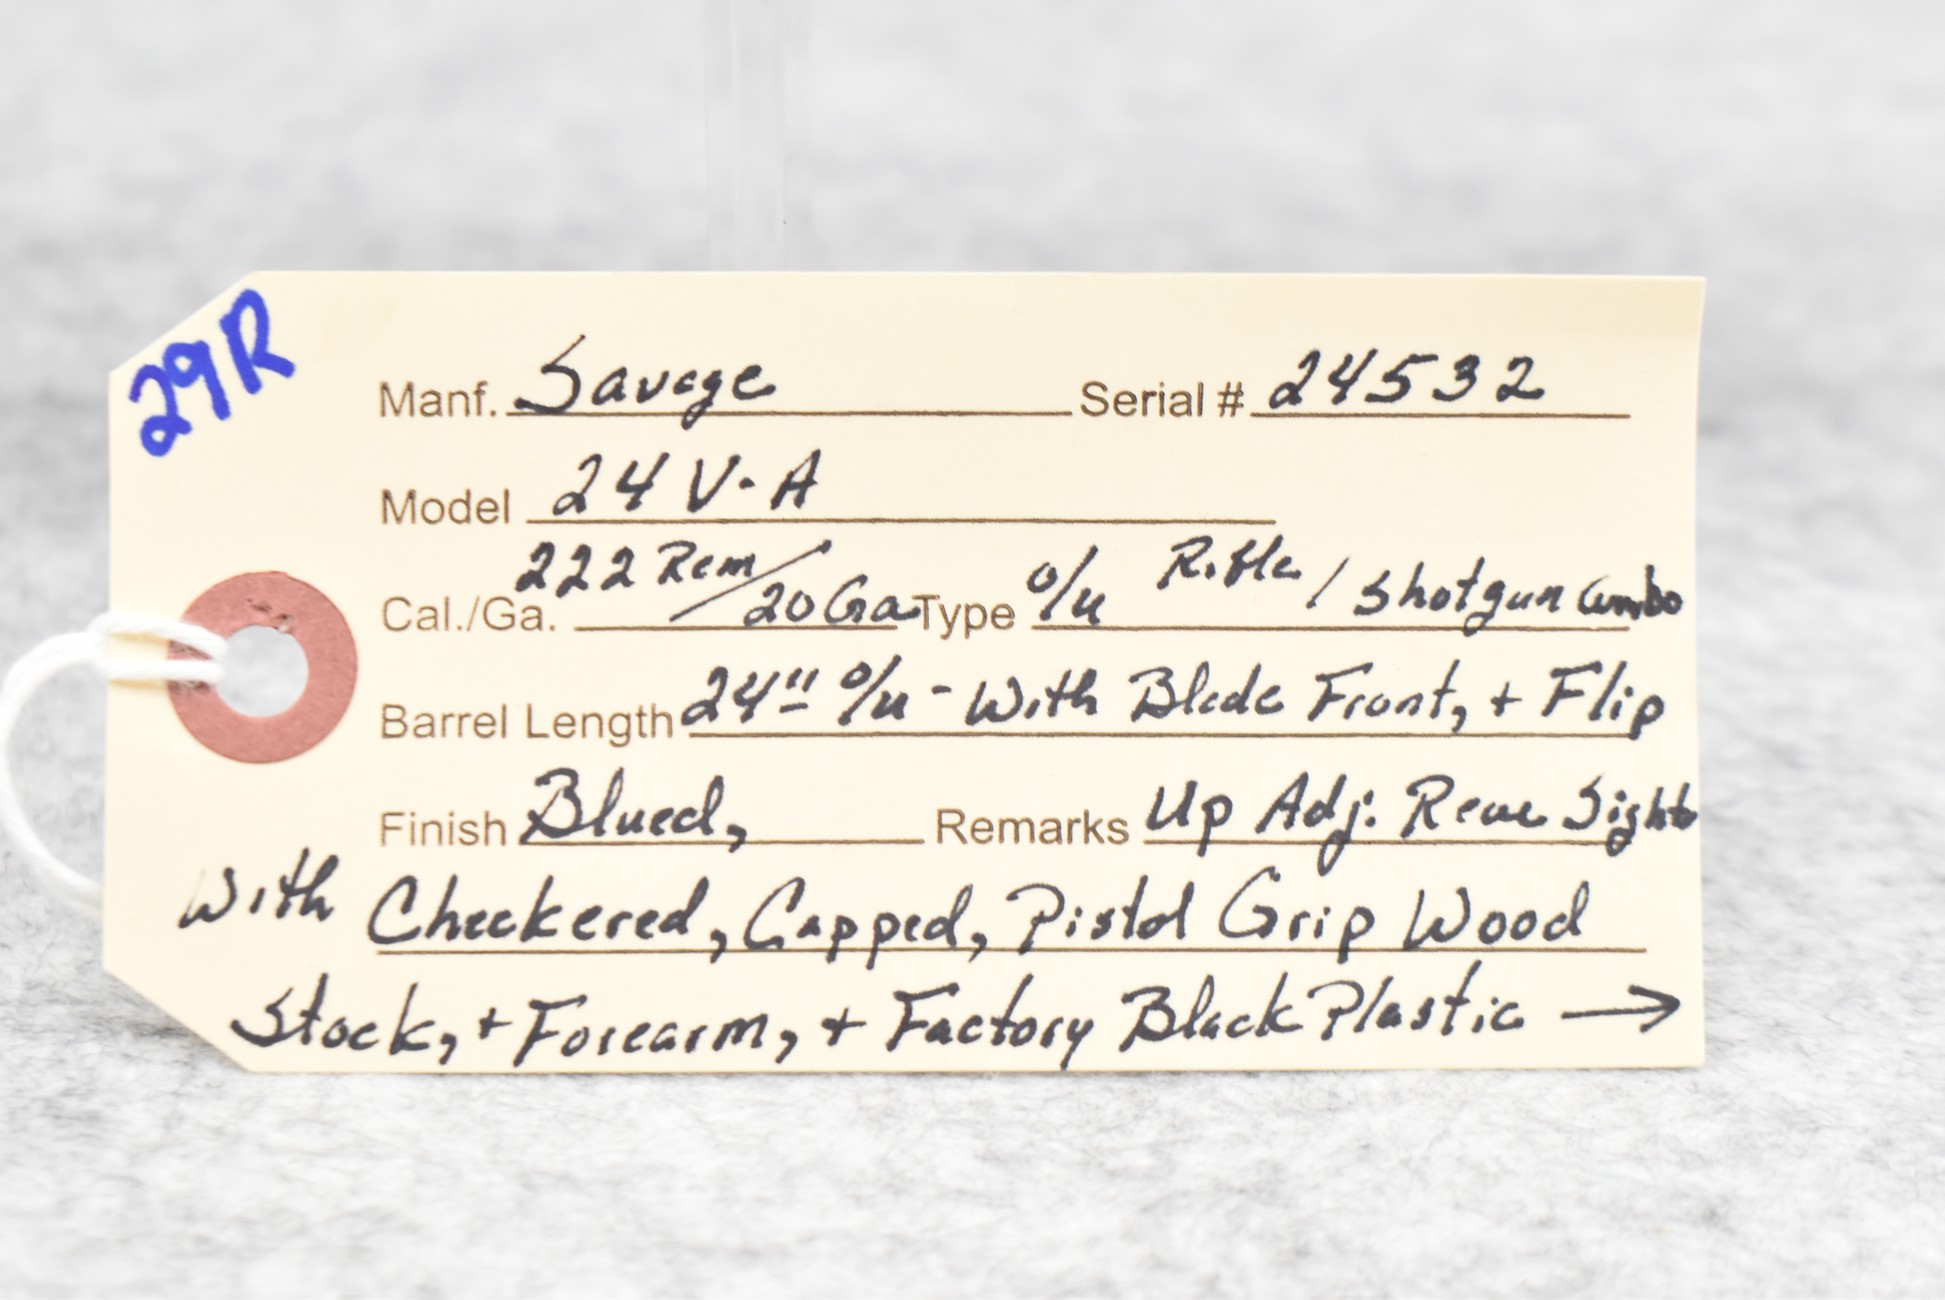 29R
Manf. Savage Serial # 24532
Model 24 V-A
Cal./Ga. 222 Rem/20 Ga Type O/u Rifle / Shotgun Combo
Barrel Length 24" O/u - With Blade Front, + Flip
Finish Blued, Remarks Up Adj. Rear Sights
With Checkered, Capped, Pistol Grip Wood
Stock, + Forearm, + Factory Black Plastic →